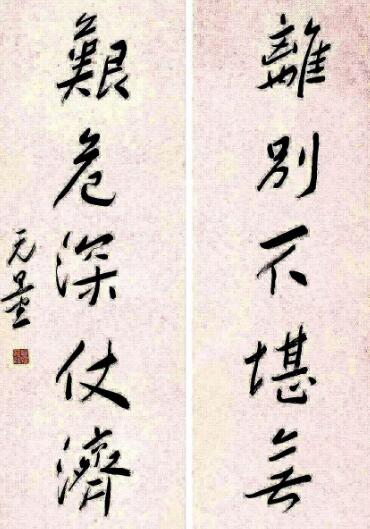 離別不堪無
艱危深仗濟
无量